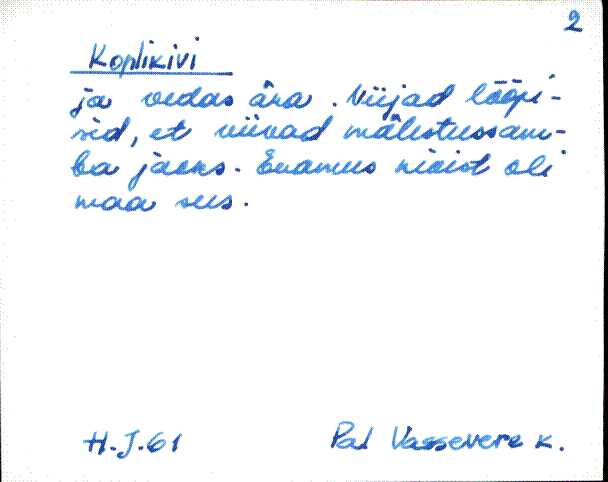 2
Koplikivi
ja vedas ära. Viijad lööpi-
sid, et viivad mälestussam-
ba jaoks. Enamus kivist oli
maa sees.
H.J.61
Pal Vassevere k.